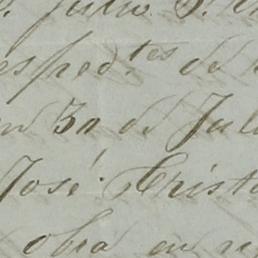 Julio S.
esped.tes de
30 de Jul
José Crist
obra en